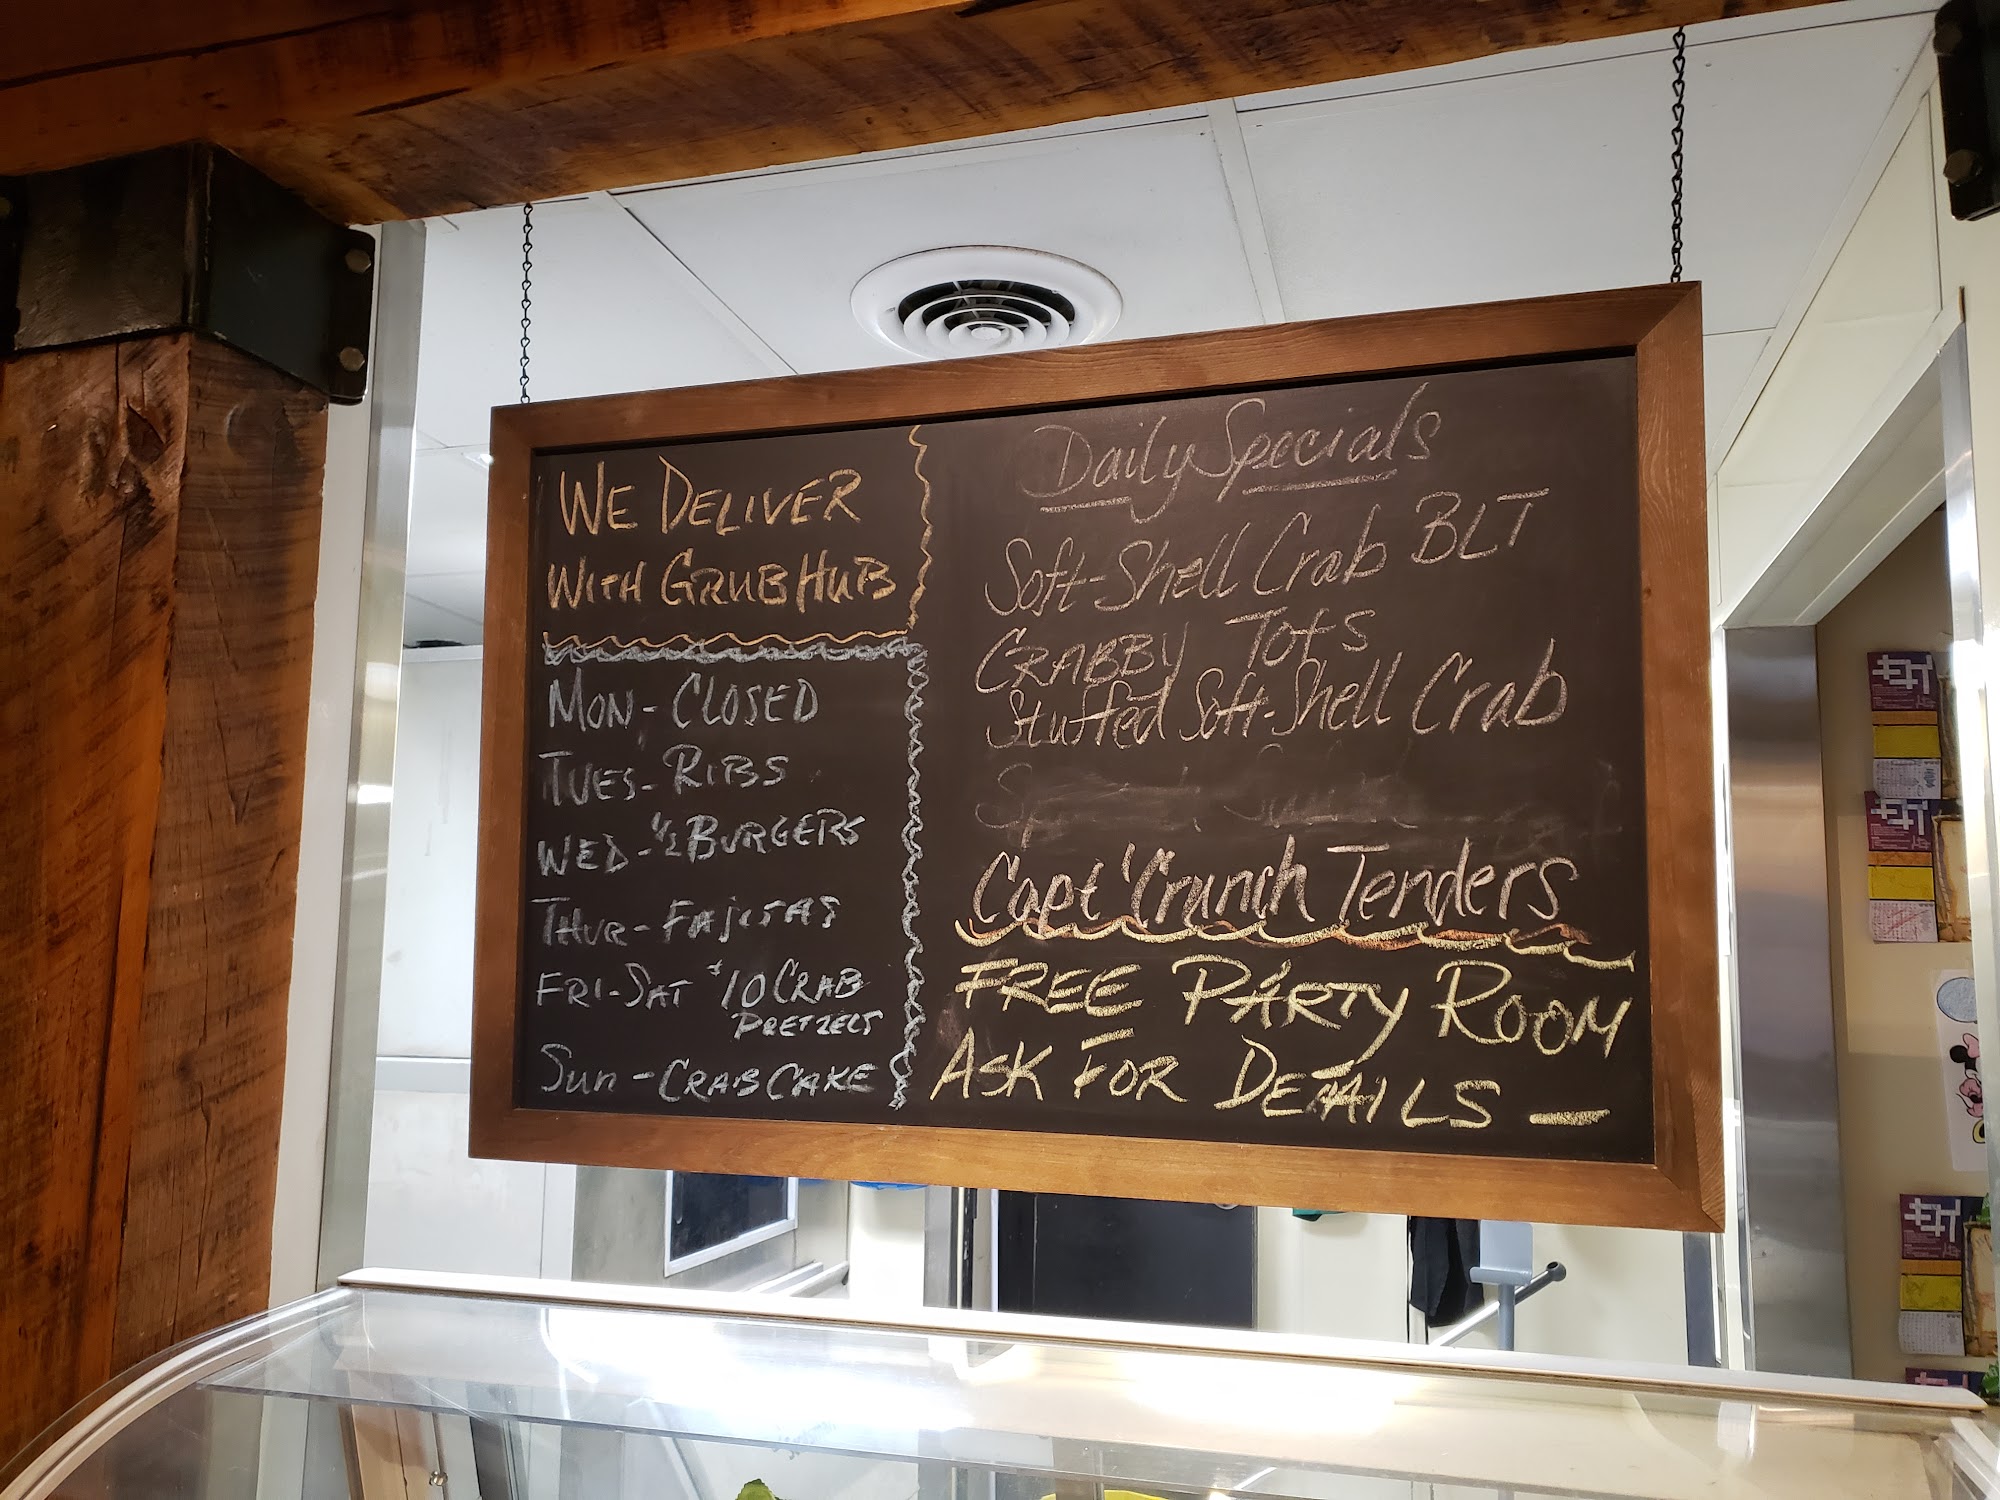 WE DELIVER
WITH GRUBHUB
MON - CLOSED
TUES - RIBS
WED - ½ BURGERS
THUR - FAJITAS
FRI-SAT $10 CRAB
PRETZELS
SUN - CRAB CAKE
Daily Specials
Soft-Shell Crab BLT
CRABBY TOTS
Stuffed Soft-Shell Crab
Capt 'Crunch Tenders
FREE PARTY ROOM
ASK FOR DETAILS -